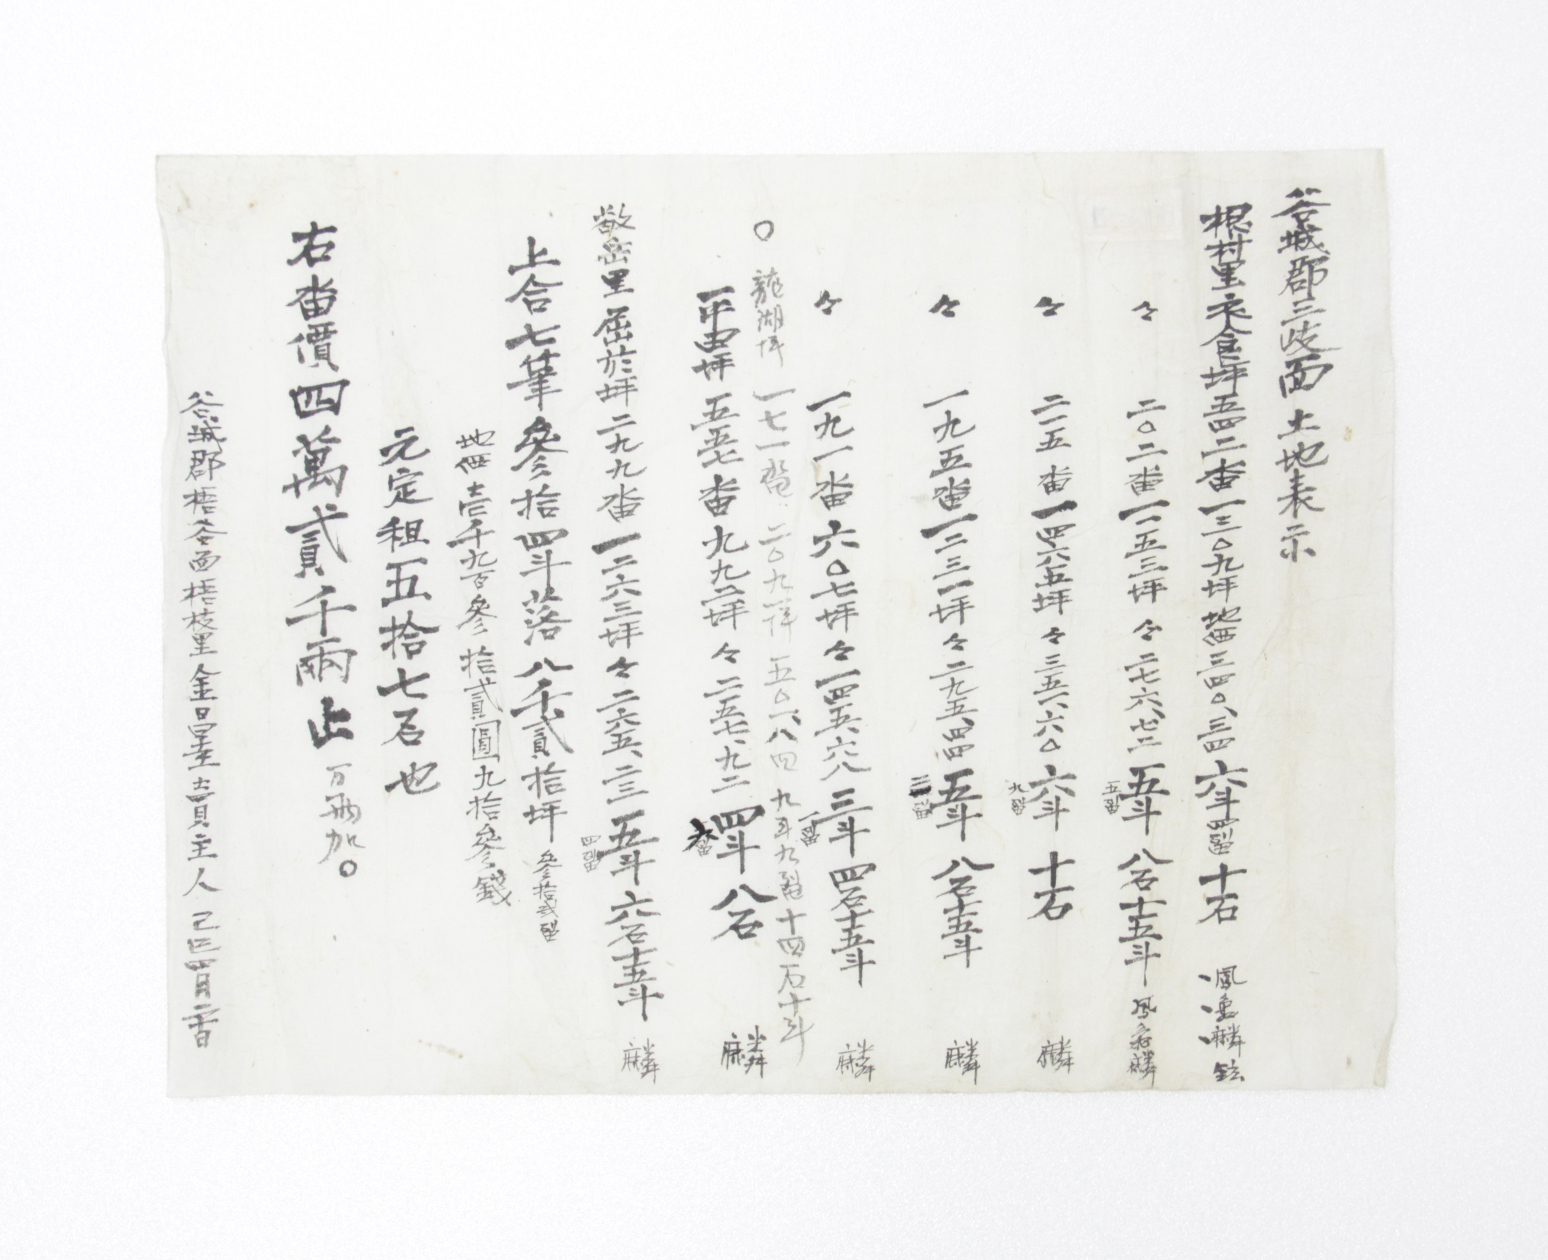 谷城郡三岐面土地表示
根村里 衣食坪 五四二畓 一三〇九坪 地価 三四〇、三四 六斗 四刕 十石
々 二〇二畓 一一五三坪 々 二七六、七二 五斗 八石十五斗
々 二一五畓 一四六五坪 々 三五六、六〇 六斗 十石 麟
々 一九五畓 一二三一坪 々 二九五、四四 五斗 八石十五斗 麟
々 一九一畓 六〇七坪 々 一四五、六八 三斗 四石十五斗 麟
〇 龍湖坪 一七一畓 二〇九一坪 五〇六、八四 九斗九刕 十四石十斗
五五七畓 九九二坪 々 二五七、九二 四斗 八石 麟
屈於坪 二九九畓 一二六三坪 々 二六五、二三 五斗 六石十五斗 麟
上合七筆 參拾四斗落 八千貳拾坪
地価 壱千九百參拾貳圓九拾參錢
元定租五拾七石也
右畓價四萬貳千兩止 百兩加〇
谷城郡梧谷面梧枝里 金 賣主人 己巳四月